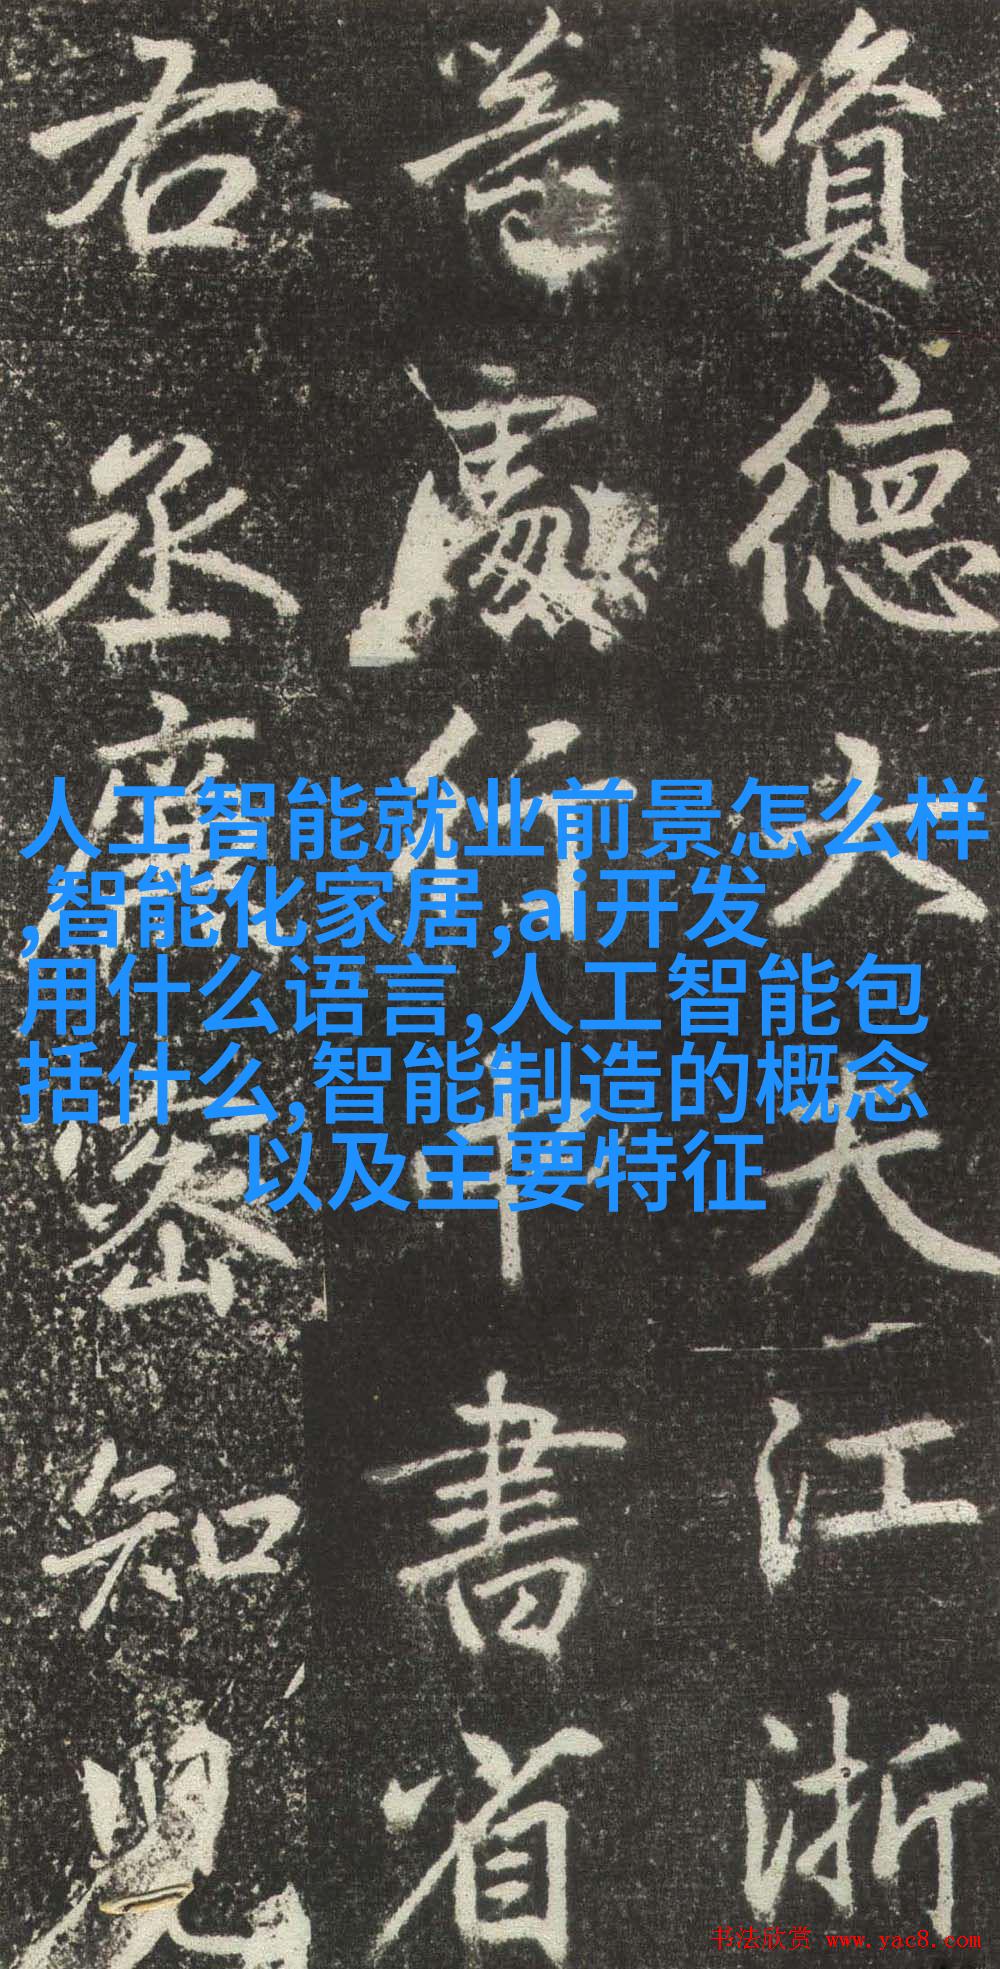 資德大夫江浙
等處行中書省
右丞廉密知兒
人工智能就业前景怎么样
,智能化家居,ai开发
用什么语言,人工智能包
括什么,智能制造的概念
以及主要特征
书法欣赏 www.yac8.com